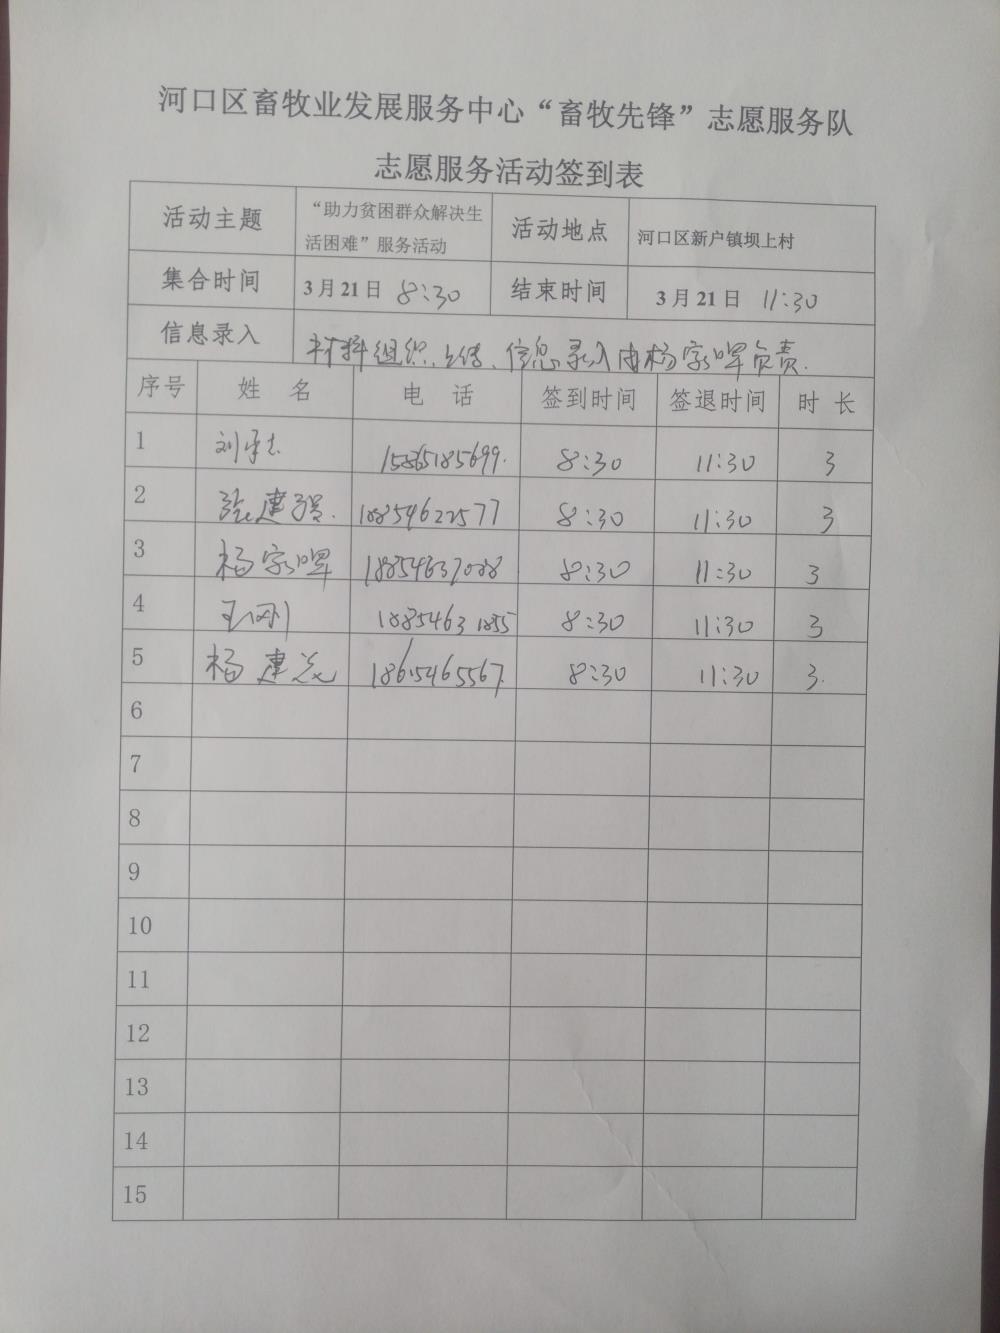 河口区畜牧业发展服务中心“畜牧先锋”志愿服务队
志愿服务活动签到表
活动主题 “助力贫困群众解决生活困难”服务活动 活动地点 河口区新户镇坝上村
集合时间 3月21日 8:30 结束时间 3月21日 11:30
信息录入 材料组织、上传、信息录入由杨家晖负责.
序号 姓 名 电 话 签到时间 签退时间 时 长
1 刘 15865185699. 8:30 11:30 3
2 张建强. 18854622577 8:30 11:30 3
3 杨家晖 8:30 11:30 3
4 王刚 18854631855 8:30 11:30 3
5 杨建 18615465567. 8:30 11:30 3.
6
7
8
9
10
11
12
13
14
15